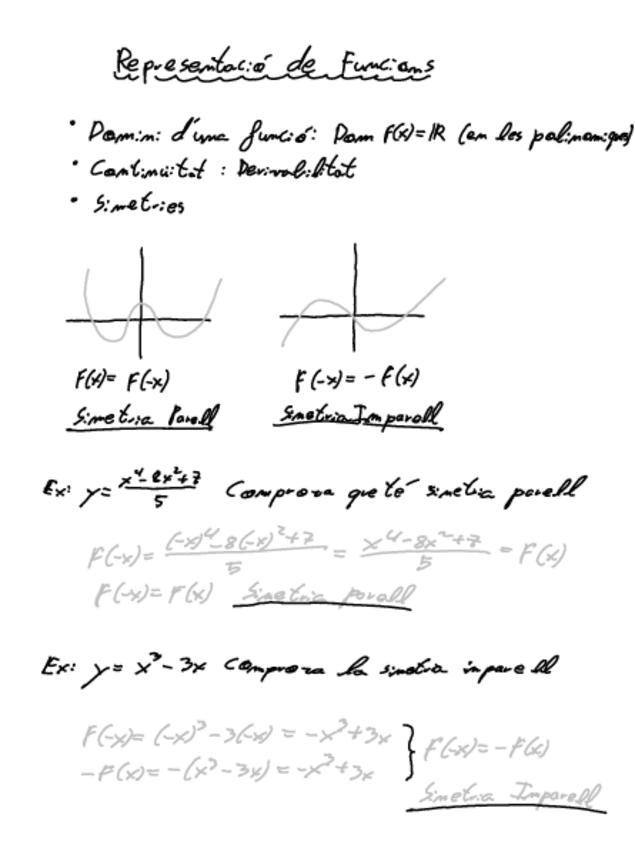 Representació de Funcions
• Domini d'una funció: Dom F(x)=ℝ (en les polinomiques)
• Continuitat : Derivabilitat
• Simetries
F(x)= F(-x)
F(-x)= -F(x)
Simetria Parell
Simetria Imparell
Ex: y= (x⁴-8x²+7)/5 Comprova que té simetria parell
F(-x)= ((-x)⁴-8(-x)²+7)/5 = (x⁴-8x²+7)/5 = F(x)
F(-x)= F(x) Simetria parell
Ex: y= x³-3x Comprova la simetria imparell
F(-x)= (-x)³-3(-x) = -x³+3x
-F(x)= -(x³-3x) = -x³+3x
} F(-x)= -F(x)
Simetria Imparell